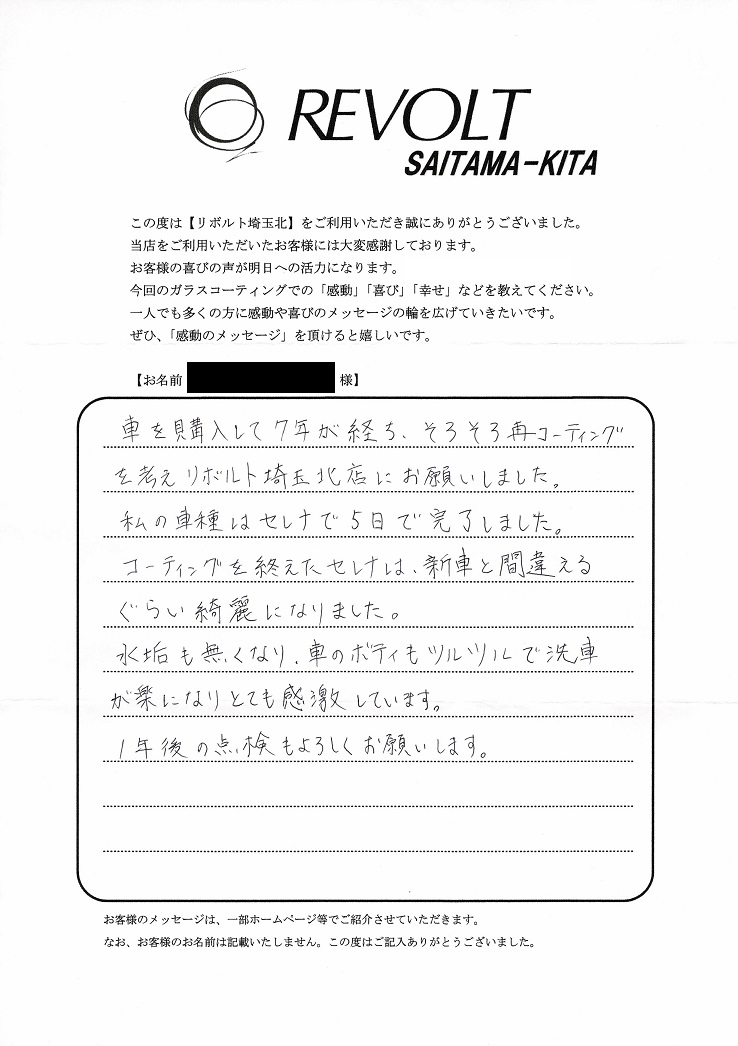 REVOLT
SAITAMA-KITA
この度は【リボルト埼玉北】をご利用いただき誠にありがとうございました。
当店をご利用いただいたお客様には大変感謝しております。
お客様の喜びの声が明日への活力になります。
今回のガラスコーティングでの「感動」「喜び」「幸せ」などを教えてください。
一人でも多くの方に感動や喜びのメッセージの輪を広げていきたいです。
ぜひ、「感動のメッセージ」を頂けると嬉しいです。
【お名前 様】
車を購入して7年が経ち、そろそろ再コーティング
を考えリボルト埼玉北店にお願いしました。
私の車種はセレナで5日で完了しました。
コーティングを終えたセレナは、新車と間違える
ぐらい綺麗になりました。
水垢も無くなり、車のボディもツルツルで洗車
が楽になりとても感激しています。
1年後の点検もよろしくお願いします。
お客様のメッセージは、一部ホームページ等でご紹介させていただきます。
なお、お客様のお名前は記載いたしません。この度はご記入ありがとうございました。